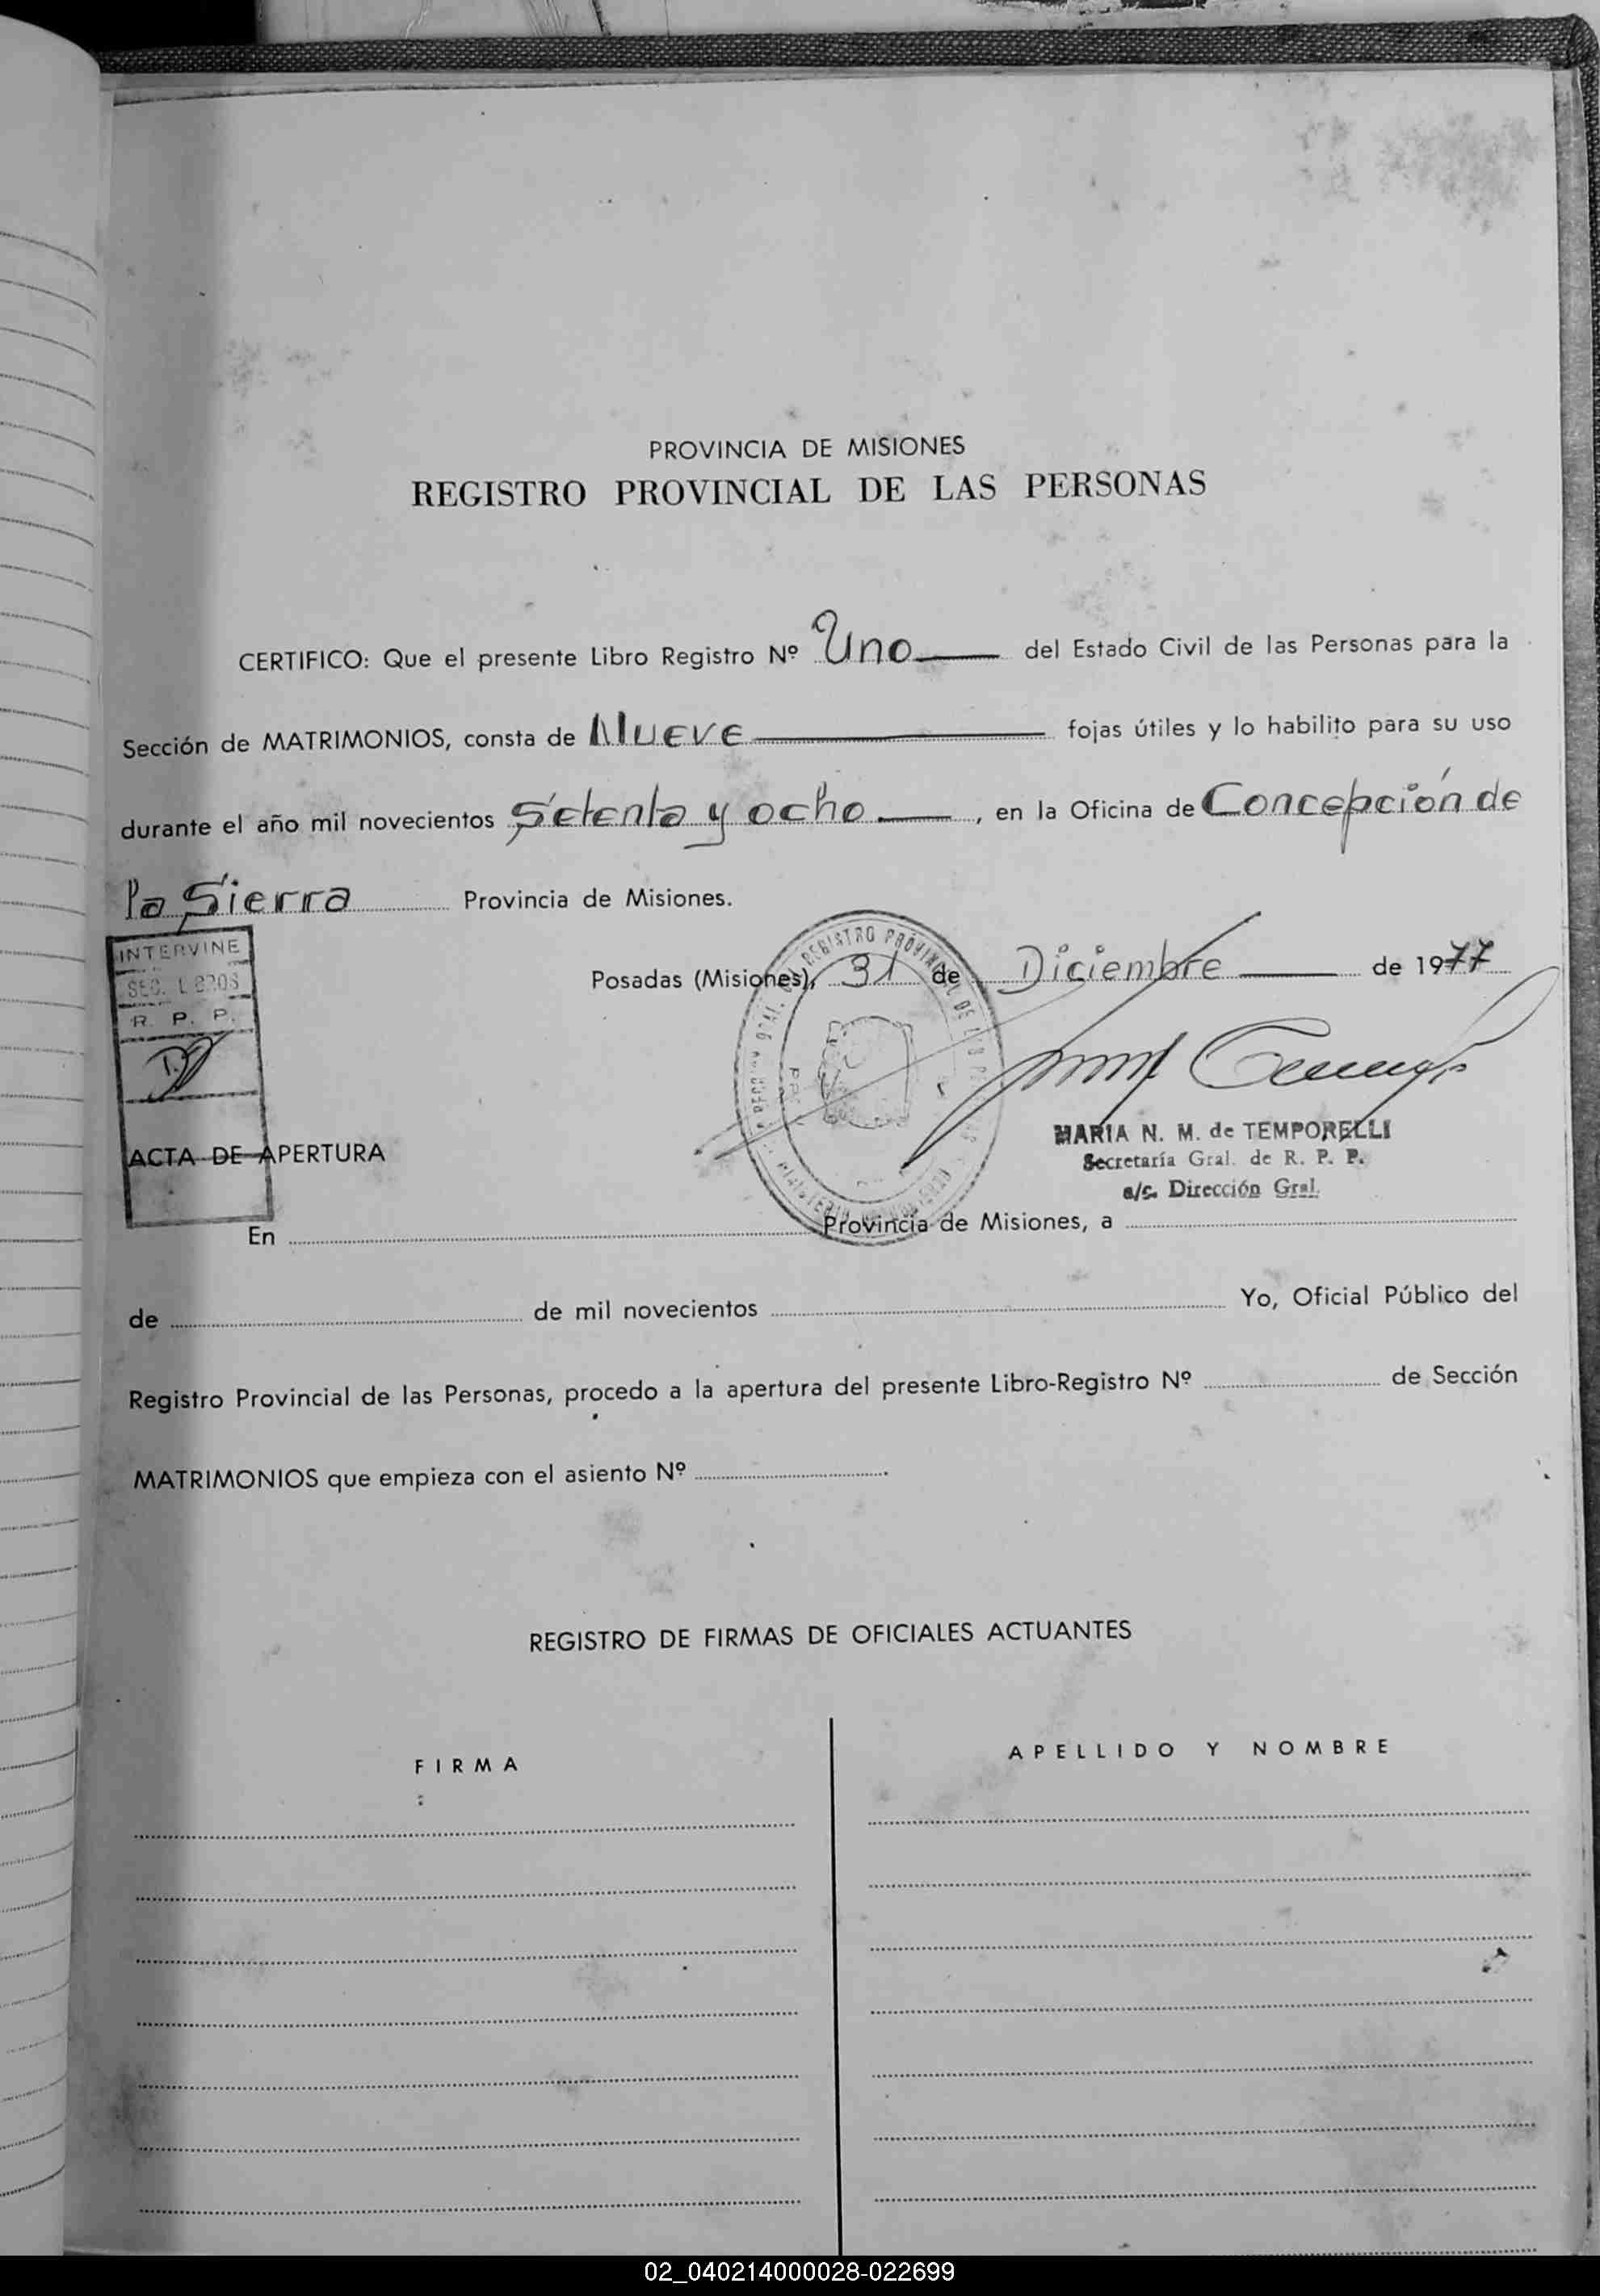 PROVINCIA DE MISIONES
REGISTRO PROVINCIAL DE LAS PERSONAS
CERTIFICO: Que el presente Libro Registro Nº Uno del Estado Civil de las Personas para la
Sección de MATRIMONIOS, consta de Nueve fojas útiles y lo habilito para su uso
durante el año mil novecientos Setenta y ocho, en la Oficina de Concepción de
la Sierra Provincia de Misiones.
INTERVINE
R. P. P.
Posadas (Misiones), 31 de Diciembre de 1977
REGISTRO PROVINCIAL DE
MARIA N. M. de TEMPORELLI
Secretaría Gral. de R. P. P.
a/c. Dirección Gral.
ACTA DE APERTURA
En Provincia de Misiones, a
de de mil novecientos Yo, Oficial Público del
Registro Provincial de las Personas, procedo a la apertura del presente Libro-Registro Nº de Sección
MATRIMONIOS que empieza con el asiento Nº .
REGISTRO DE FIRMAS DE OFICIALES ACTUANTES
FIRMA
APELLIDO Y NOMBRE
02_040214000028-022699